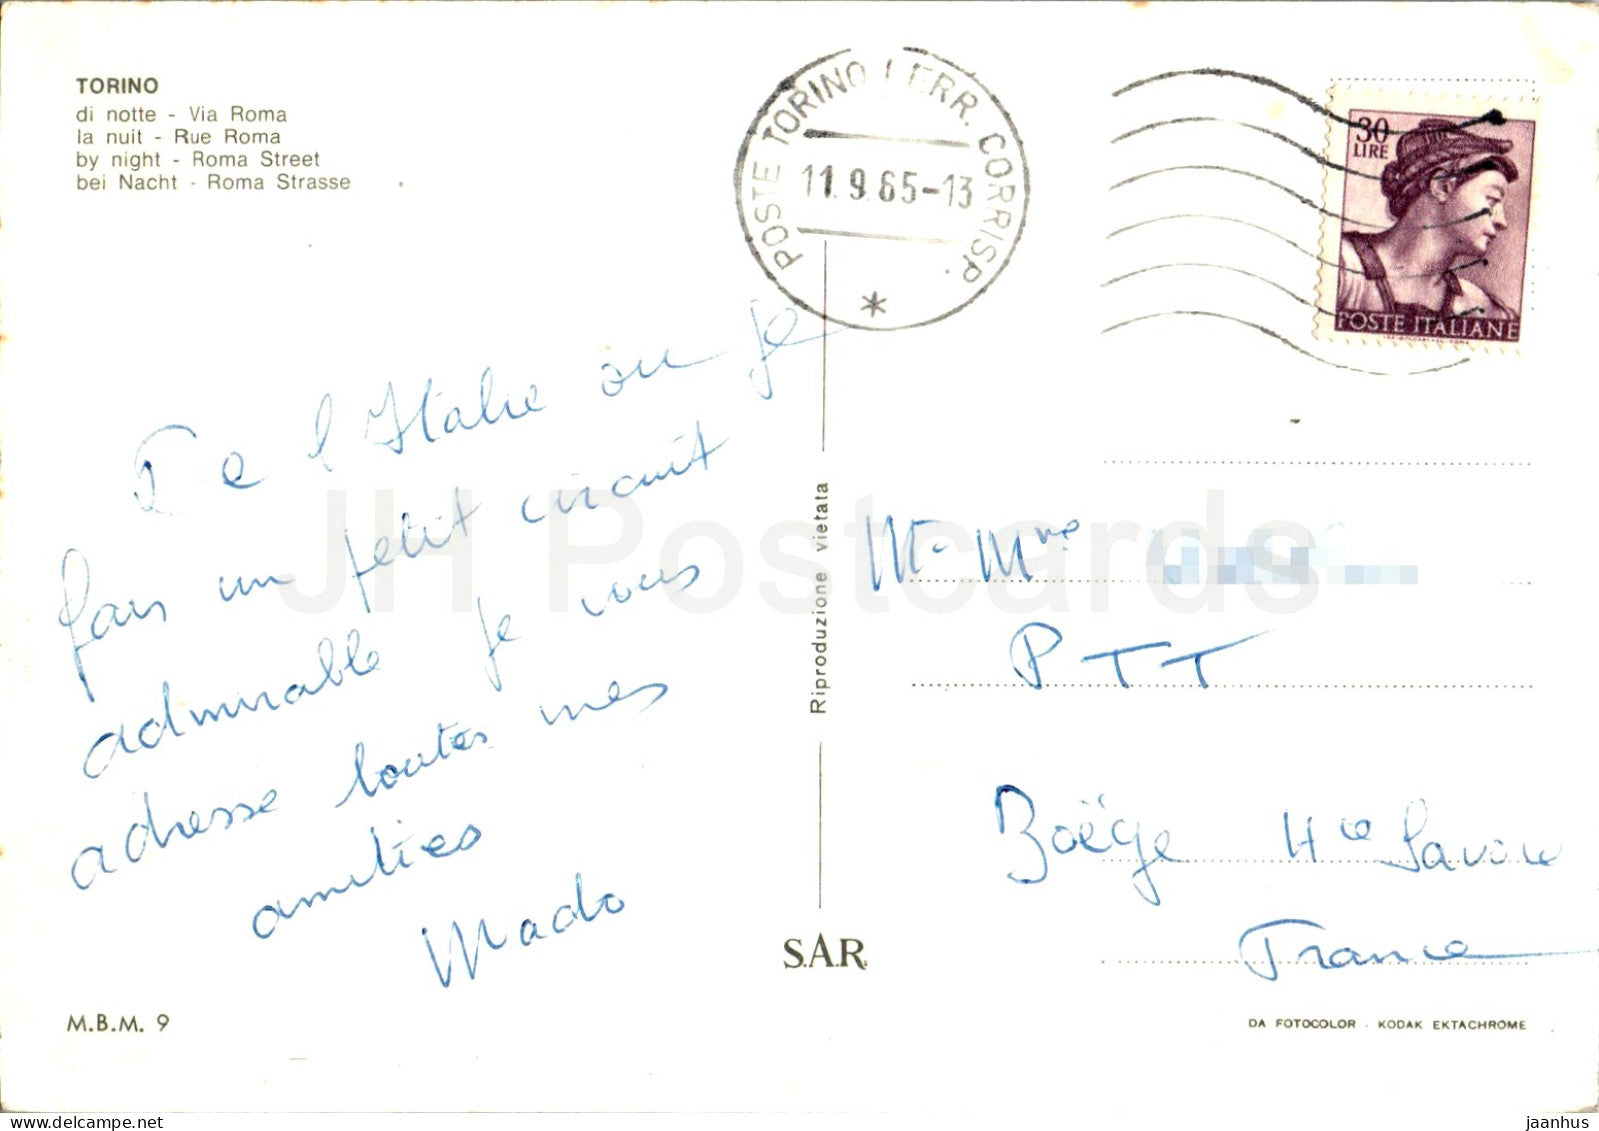 TORINO
di notte - Via Roma
la nuit - Rue Roma
by night - Roma Street
bei Nacht - Roma Strasse
POSTE TORINO FERR. CORRISP.
11.9.65-13
30
LIRE
POSTE ITALIANE
De l'Italie ou je
fais un petit circuit
admirable je vous
adresse toutes mes
amitiés
Mado
Riproduzione vietata
M. Mme
PTT
Boëge Hte Savoie
France
S.A.R.
M.B.M. 9
DA FOTOCOLOR - KODAK EKTACHROME
JH Postcards
jaanhus @ delcampe.net